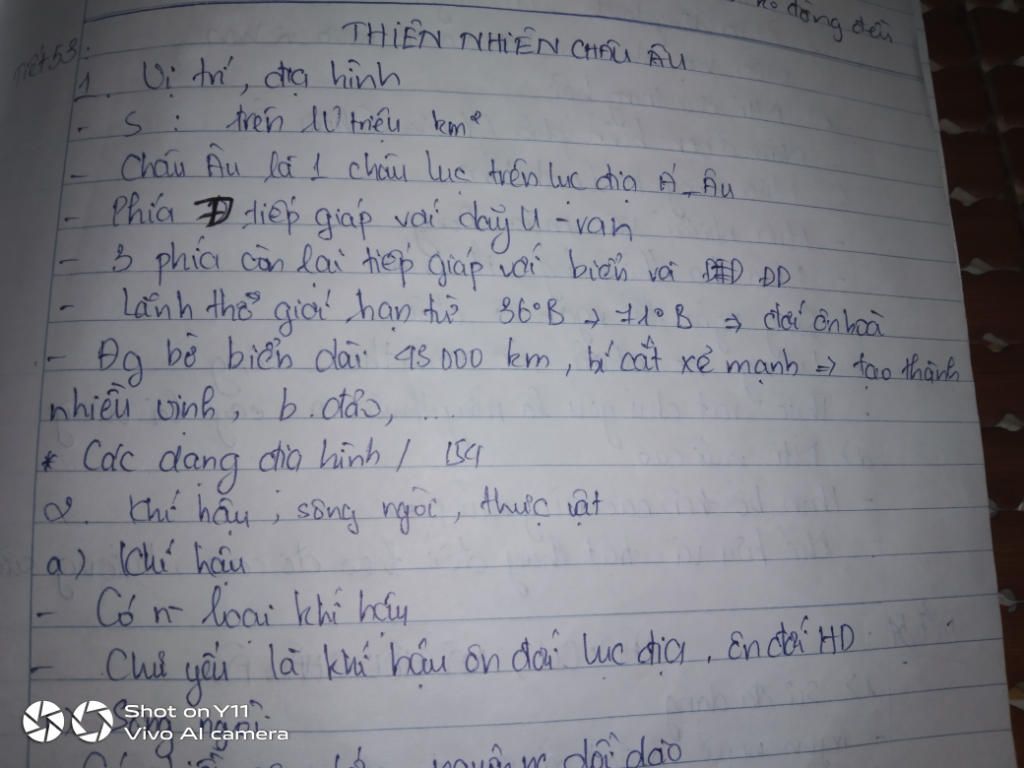 ko đồng đều
Tiết 53:
THIÊN NHIÊN CHÂU ÂU
1. Vị trí, địa hình
- S : trên 10 triệu km²
- Châu Âu là 1 châu lục trên lục địa Á_Âu
- Phía Đ tiếp giáp với dãy U-ran
- 3 phía còn lại tiếp giáp với biển và ĐD
- Lãnh thổ giới hạn từ 36°B → 71°B => đới ôn hoà
- Đg bờ biển dài 43000 km, bị cắt xẻ mạnh => tạo thành
nhiều vịnh, b.đảo, ...
* Các dạng địa hình / 154
2. Khí hậu, sông ngòi, thực vật
a) Khí hậu
- Có n~ loại khí hậu
- Chủ yếu là khí hậu ôn đới lục địa, ôn đới HD
Sông ngòi:
dồi dào
Shot on Y11
Vivo AI camera